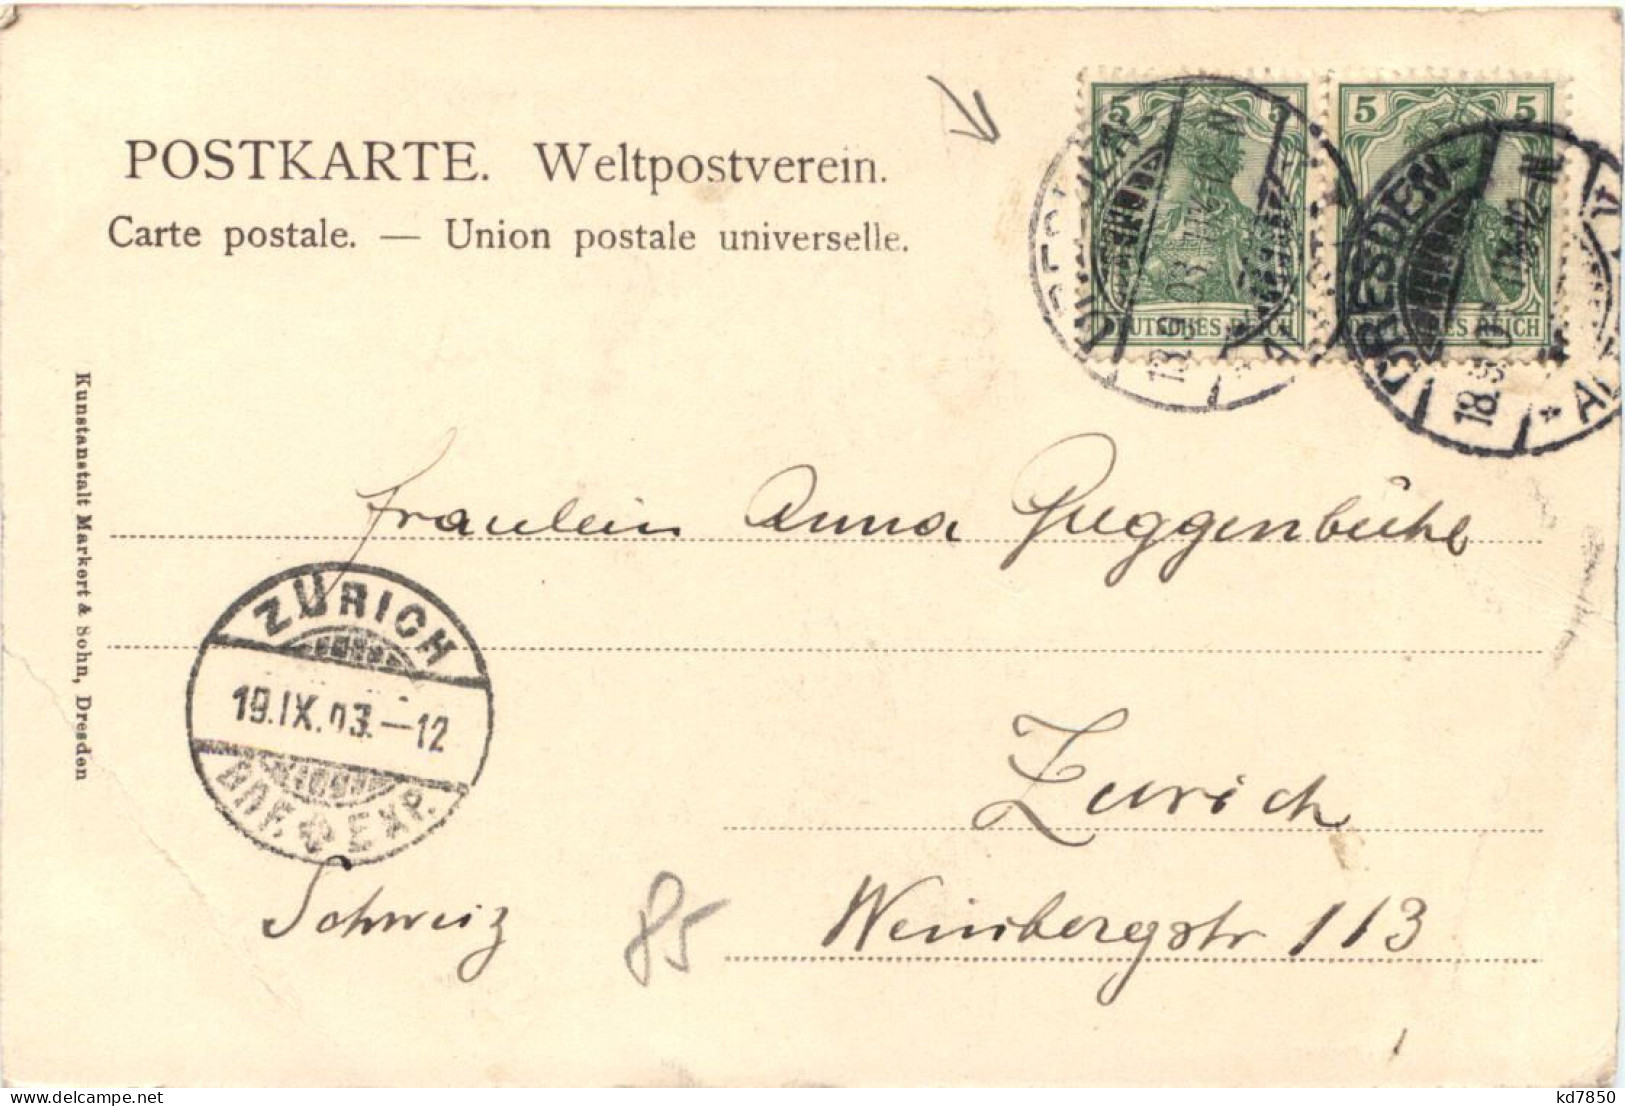 POSTKARTE. Weltpostverein.
Carte postale. — Union postale universelle.
5 5 5 5
DEUTSCHES REICH DEUTSCHES REICH
DRESDEN-
Kunstanstalt Markert & Sohn, Dresden
Fräulein Anna Guggenbühl
ZÜRICH
19.IX.03.—12
BRF. EXP.
Zürich
Weinbergstr 113
Schweiz
85
kd7850